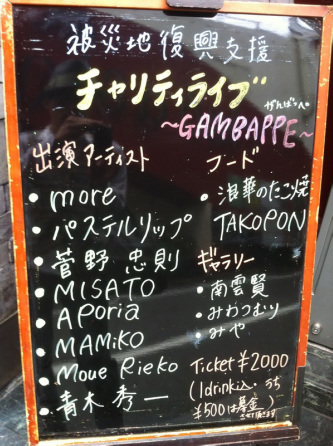 被災地復興支援
チャリティライブ
がんばっぺ
～GAMBAPPE～
出演アーティスト
・more
・パステルリップ
・菅野 忠則
・MISATO
・APoria
・MAMiKO
・Moue Rieko
・青木 秀一
フード
・浪華のたこ焼
TAKOPON
ギャラリー
・南雲賢
・みわつむり
・みや
Ticket ¥2000
(1drink込・うち
¥500は募金
させて頂きます)